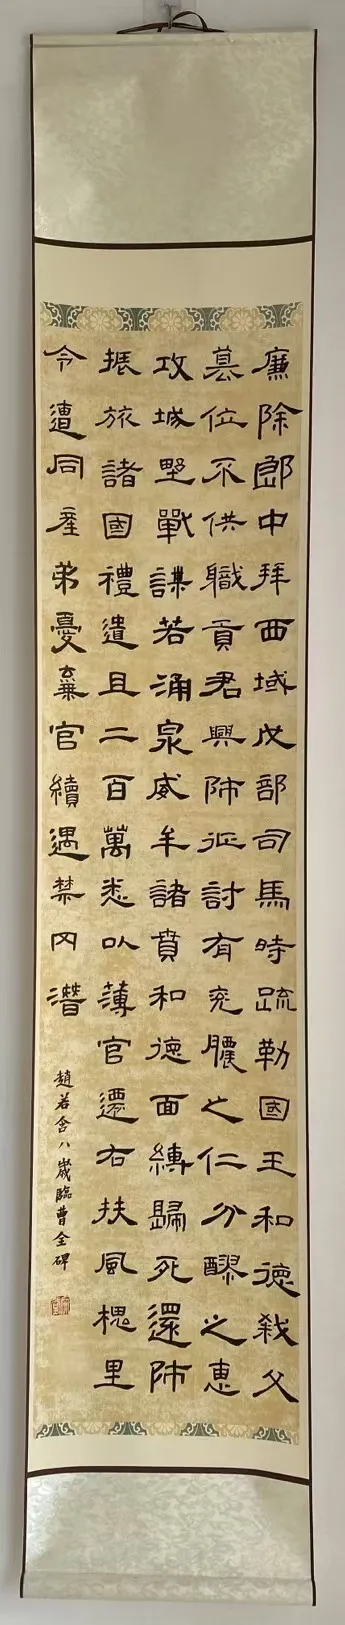 廉除郎中拜西域戊部司馬時疏勒國王和德弒父
篡位不供職貢君興師征討有兗膿之仁分醪之惠
攻城野戰謀若涌泉威牟諸賁和德面縛歸死還師
振旅諸國禮遺且二百萬悉以薄官遷右扶風槐里
令遭同產弟憂棄官續遇禁冈潛
趙若含八歲臨曹全碑